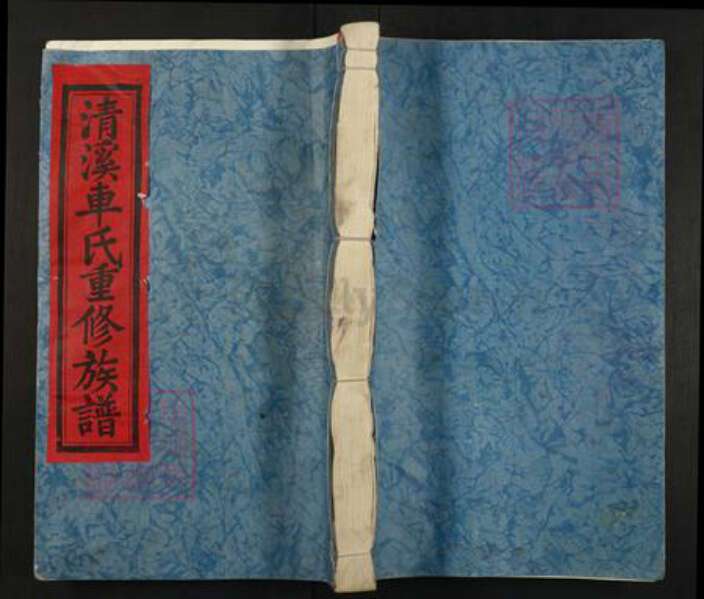 清溪車氏重修族譜